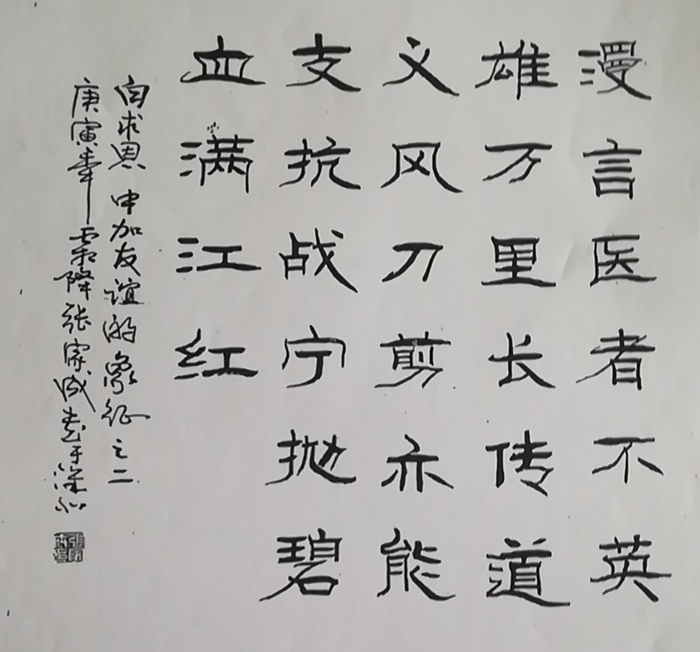 漫言医者不英
雄万里长传道
义风刀剪亦能
支抗战宁抛碧
血满江红
白求恩 中加友谊的象征之二
庚寅年霜降张家成书于深圳